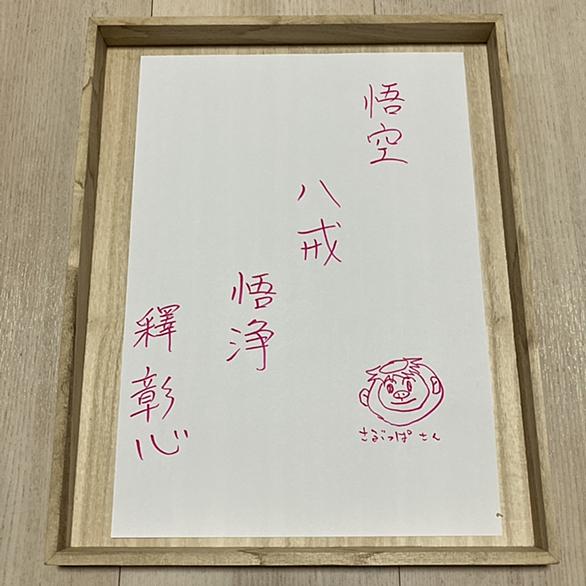 悟空
八戒
悟浄
釋彰心
さるごっぱ さん